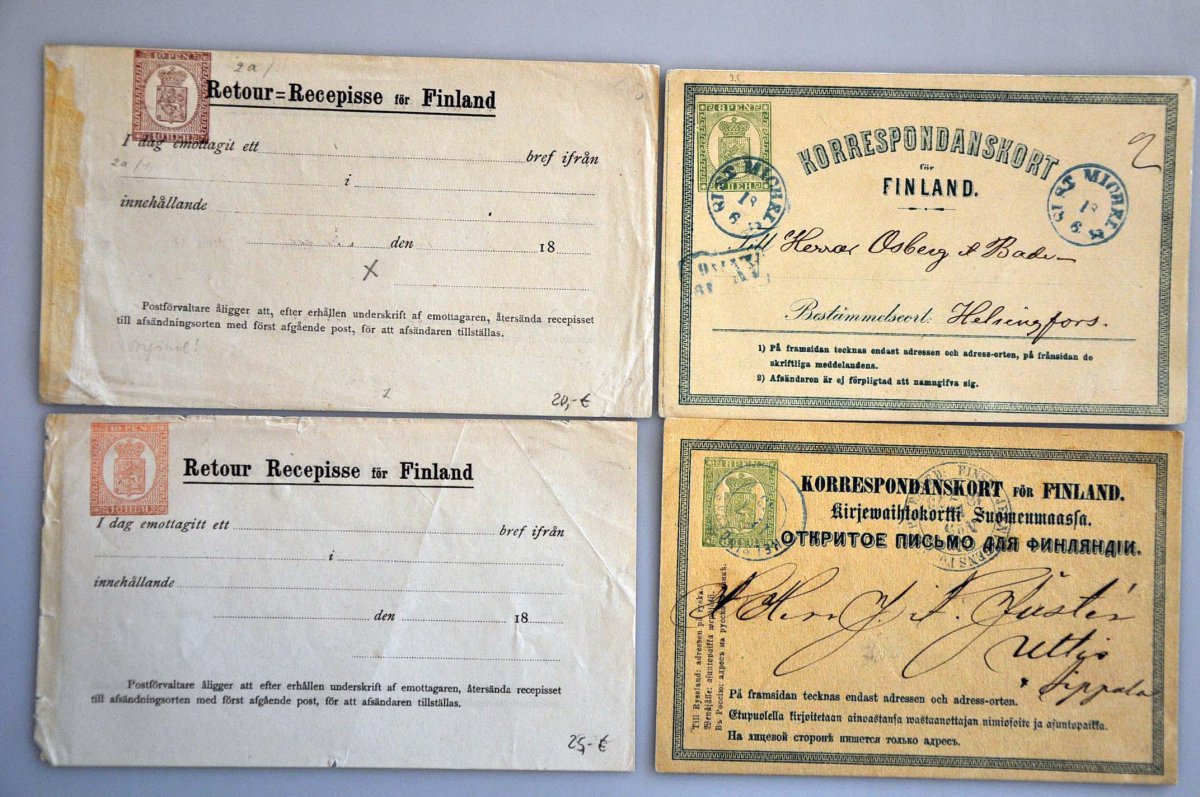 10 PEN.
2a/
Retour=Recepisse för Finland
10 ПЕН
I dag emottagit ett bref ifrån
2a/1
i
innehållande
den 18
x
Postförvaltare åligger att, efter erhållen underskrift af emottagaren, återsända recepisset
till afsändningsorten med först afgående post, för att afsändaren tillställas.
original!
20,-€
10 PEN.
Retour Recepisse för Finland
10 ПЕН
I dag emottagitt ett bref ifrån
i
innehållande
den 18
Postförvaltare åligger att efter erhållen underskrift af emottagaren, återsända recepisset
till afsändningsorten med först afgående post, för att afsändaren tillställas.
25,-€
8 PEN
KORRESPONDANSKORT
för
FINLAND.
2
ST MICHEL
18
6
ST MICHEL
18
6
Till Herrar Osberg & Bade
Bestämmelseort: Helsingfors.
1) På framsidan tecknas endast adressen och adress-orten, på frånsidan de
skriftliga meddelandena.
2) Afsändaren är ej förpligtad att namngifva sig.
8 PEN
KORRESPONDANSKORT FÖR FINLAND.
Kirjewaihtokortti Suomenmaassa.
ОТКРИТОЕ ПИСЬМО ДЛЯ ФИНЛЯНДІИ.
Herr J. A.
Uttis
Sippola
Till Ryssland: adressen på ryska.
Wenäjälle: ajuntopaikka wenäjäksi.
Въ Россію: адресъ на русскомъ языкѣ.
På framsidan tecknas endast adressen och adress-orten.
Etupuolella kirjoitetaan ainoastansa wastaanottajan nimi osoite ja asuntopaikka.
На лицевой сторонѣ пишется только адресъ.